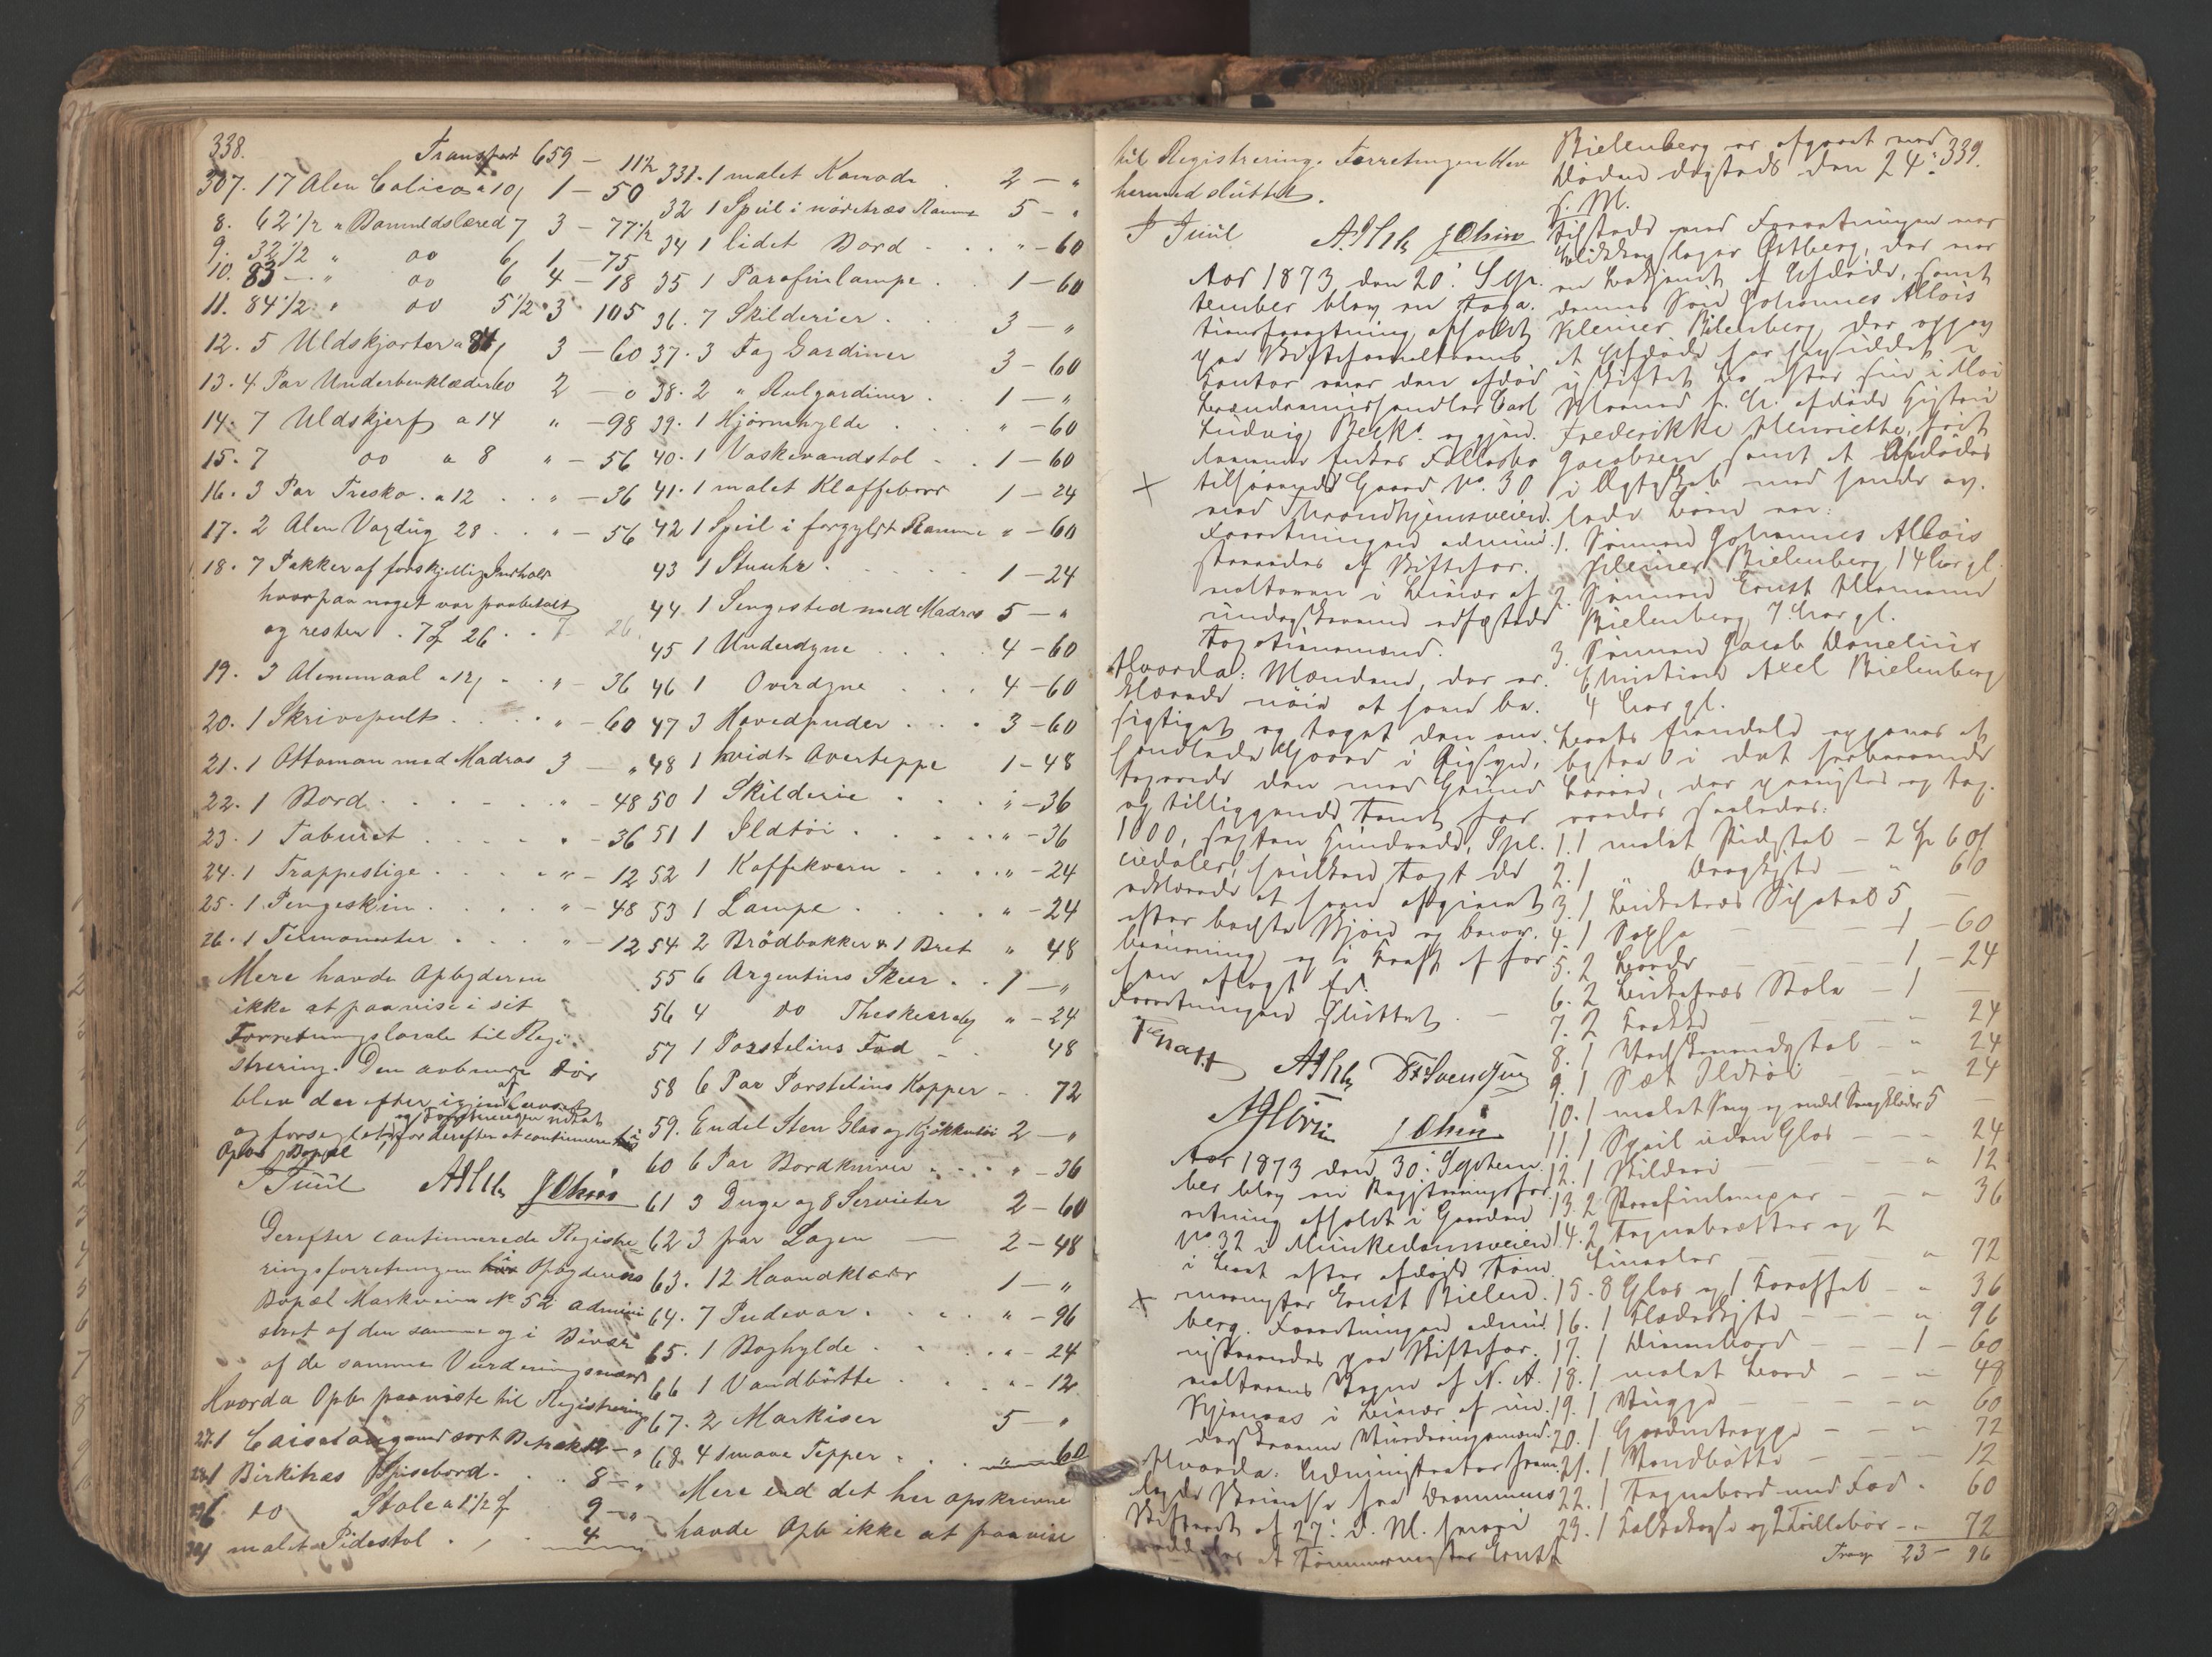 338.
Transport 659 - 11½
307. 17 Alen Calico a 10 1 - 50
8. 62½ " Bomuldslæred 7 3 - 77½
9. 32½ " do 6 1 - 75
10. 83 - " do 6 4 - 18
11. 84½ " do 5½ 3 105
12. 5 Uldskjorter a 84 3 - 60
13. 4 Par Underbenklæder 60 2 - 0
14. 7 Uldskjerf a 14 " - 98
15. 7 do a 8 " - 56
16. 3 Par Tresko. a 12 . . " - 36
17. 2 Alen Voxdug 28 . . " - 56
18. 7 Pakker af forskjellig Indhold
hvorpaa noget var forudbetalt
og rester . 7 26 . . 7 26.
19. 3 Alenemaal a 12 " - 36
20. 1 Skrivepult . . . . " - 60
21. 1 Ottoman med Madras 3 - "
22. 1 Bord . . . . " - 48
23. 1 Taburet . . . . " - 36
24. 1 Trappestige . . . . " - 12
25. 1 Pengeskrin . . . . " - 48
26. 1 Termometer . . . " - 12
Mere havde Opbyderen
ikke at paavise i sit
Forretningslocale til Regi-
strering. Den aabnede Dör
blev derefter igjen
og forseglet, for derefter at continuere i
Opbs Bopæl
J Juul JOlsen
Derefter continuerede Registre-
ringsforretningen i Opbyderens
Bopæl Markveien No 52 admini-
stret af den samme og i Bivær
af de samme Vurderingsmænd
Hvorda Opb. paaviste til Registrering
27. 1 med sort Betræk 12 - "
28. 1 Birketræs Spisebord . . . 8 - "
29. 6 do Stole a 1½ 9 - "
30. 1 malet Pidestol . . . 4
331. 1 malet Komode . 2 - "
32 1 Speil i nödetræs Ramme 5 - "
34 1 lidet Bord . . . . " - 60
35 1 Parafinlampe . . 1 - 60
36. 7 Skilderier . . 3 - "
37. 3 Fag Gardiner 3 - 60
38. 2 " Rulgardiner . . 1 - "
39. 1 Hjörnehylde . . . " - 60
40. 1 Vaskevandstol - . 1 - 60
41. 1 malet Klaffebord 1 - 24
42 1 Speil i forgyldt Ramme " - 60
43 1 Stuuhr . . . . . 1 - 24
44. 1 Sengested med Madras 5 - "
45 1 Underdyne . . . . 4 - 60
46 1 Overdyne . . . 4 - 60
47 3 Hovedpuder . . . 3 - 60
48 1 hvidt Overteppe 1 - 48
50 1 Skilderie . . . . " - 36
51 1 Ildtöi . . . . . " - 36
52 1 Kaffekvern . . . . " - 24
53 1 Lampe . . . . . " - 24
54 2 Brödbakker & 1 Bret " 48
55 6 Argentins Skeer . . 1 - "
56 4 do Theskeer " - 24
57 1 Porstelins Fad - . 48
58 6 Par Porstelins Kopper - . 72
59. Endel Sten Glas og Kjökkentöi 2 - "
60 6 Par Bordkniver . . . " - 36
61 3 Duge og 8 Servietter 2 - 60
62 3 par Lagen - 2 - 48
63. 12 Haandklæder 1 - "
64. 7 Pudevar . . . " - 96
65. 1 Boghylde . . . " - 24
66 1 Vandbötte . . . " - 12
67. 2 Markiser 5 - "
68. 4 smaae Tepper . . " 60
Mere end det her opskrevne
havde Opb ikke at paavise
til Registrering. Forretningen blev
hermed sluttet.
J Juul JOlsen
Aar 1873 den 20. Sep-
tember blev en Taxa-
tionsforretning afholdt
paa Skifteforvalterens
Contor over den afdöd
Brændevinshandler Carl
Ludvig Beck. og gjen-
levende Enkes Fællesbo
tilhörende Gaard No. 30
ved Throndhjemsveien.
Forretningen admini-
streredes af Skiftefor-
valteren i Bivær af
undertegnede edfæstede
Taxationsmænd.
Hvorda: Mændene, der er-
klærede nöie at have be-
sigtiget og taget den om-
handlede Gaard i Öiesyn,
taxerede den med Grund
og tilliggende Tomt for
1600, sexten Hundrede, Spe-
ciedaler, hvilken Taxt de
erklærede at have afgivet
efter bedste Skjön og Overbe-
bevisning og i Kraft af for-
hen aflagt Ed.
Forretningen sluttet. -
JOlsen
Aar 1873 den 30. Septem-
ber blev en Registreringsfor-
retning afholdt i Gaarden
No 32 i Munkedamsveien
i Boet efter afdöde Töm-
mermester Ernst Bielen-
berg. Forretningen admi-
nistreredes paa Skiftefor-
valterens Vegne af N. A.
i Bivær af un-
derskrevne Vurderingsmænd.
Hvorda: Administrator frem-
lagde Skrivelse fra Drammens
Skifteret af 27. d. M. hvori
meddeles at Tömmermester Ernst
339.
Bielenberg er afgaaet ved
Döden sammesteds den 24.
s. M.
Tilstede ved Forretningen var
Blikkenslager Östberg, der var
en Bekjendt af Afdöde, samt
dennes Sön Johannes Allois
Kleiner Bielenberg, der opgav
at Afdöde har hensiddet i
uskiftet Bo efter sin i Mai
Maaned f. A. afdöde Hustru
Frederikke Henriette, födt
Jacobsen samt at Afdödes
i Ægteskab med hende av-
lede Börn er:
1. Sönnen Johannes Allois
Kleiner Bielenberg 14 Aar gl.
2. Sönnen Ernst Hermann
Bielenberg 7 Aar gl.
3. Sönnen Jacob Danelius
Christian Axel Bielenberg
4 Aar gl.
Boets Eiendele opgaves at
bestaa i det forhaanden-
værende, der paavistes og tax-
eredes saaledes:
1. 1 malet Pidestal - 2 60
2. 1 " Dragkiste - " 60
3. 1 Birketræs 5 -
4. 1 Sopha - 1 - 60
5. 2 Borde - 1 - 24
6. 2 Birketræs Stole - 1 -
7. 2 - " 24
8. 1 Vadskevandstol - " 24
9. 1 Sæt Ildtöi - " 24
10. 1 malet Seng og endel Sengklæder 5 -
11. 1 Speil uden Glas - - 24
12. 1 Skilderi - " 12
13. 2 Parafinlamper - " 36
14. 2 Tegnebrætter og 2
Linealer - " 72
15. 8 Glas og 1 Karaffel - " 36
16. 1 Klædeskiste - " 96
17. 1 - 1 - 60
18. 1 malet Bord - " 48
19. 1 Vugge - " 60
20. 1 Gardintrappe - " 72
21. 1 Vandbötte - 12
22. 1 Tegnebord med Fod . 60
23. 1 og 2 Trillebör - " 72
Transp 23 - 96